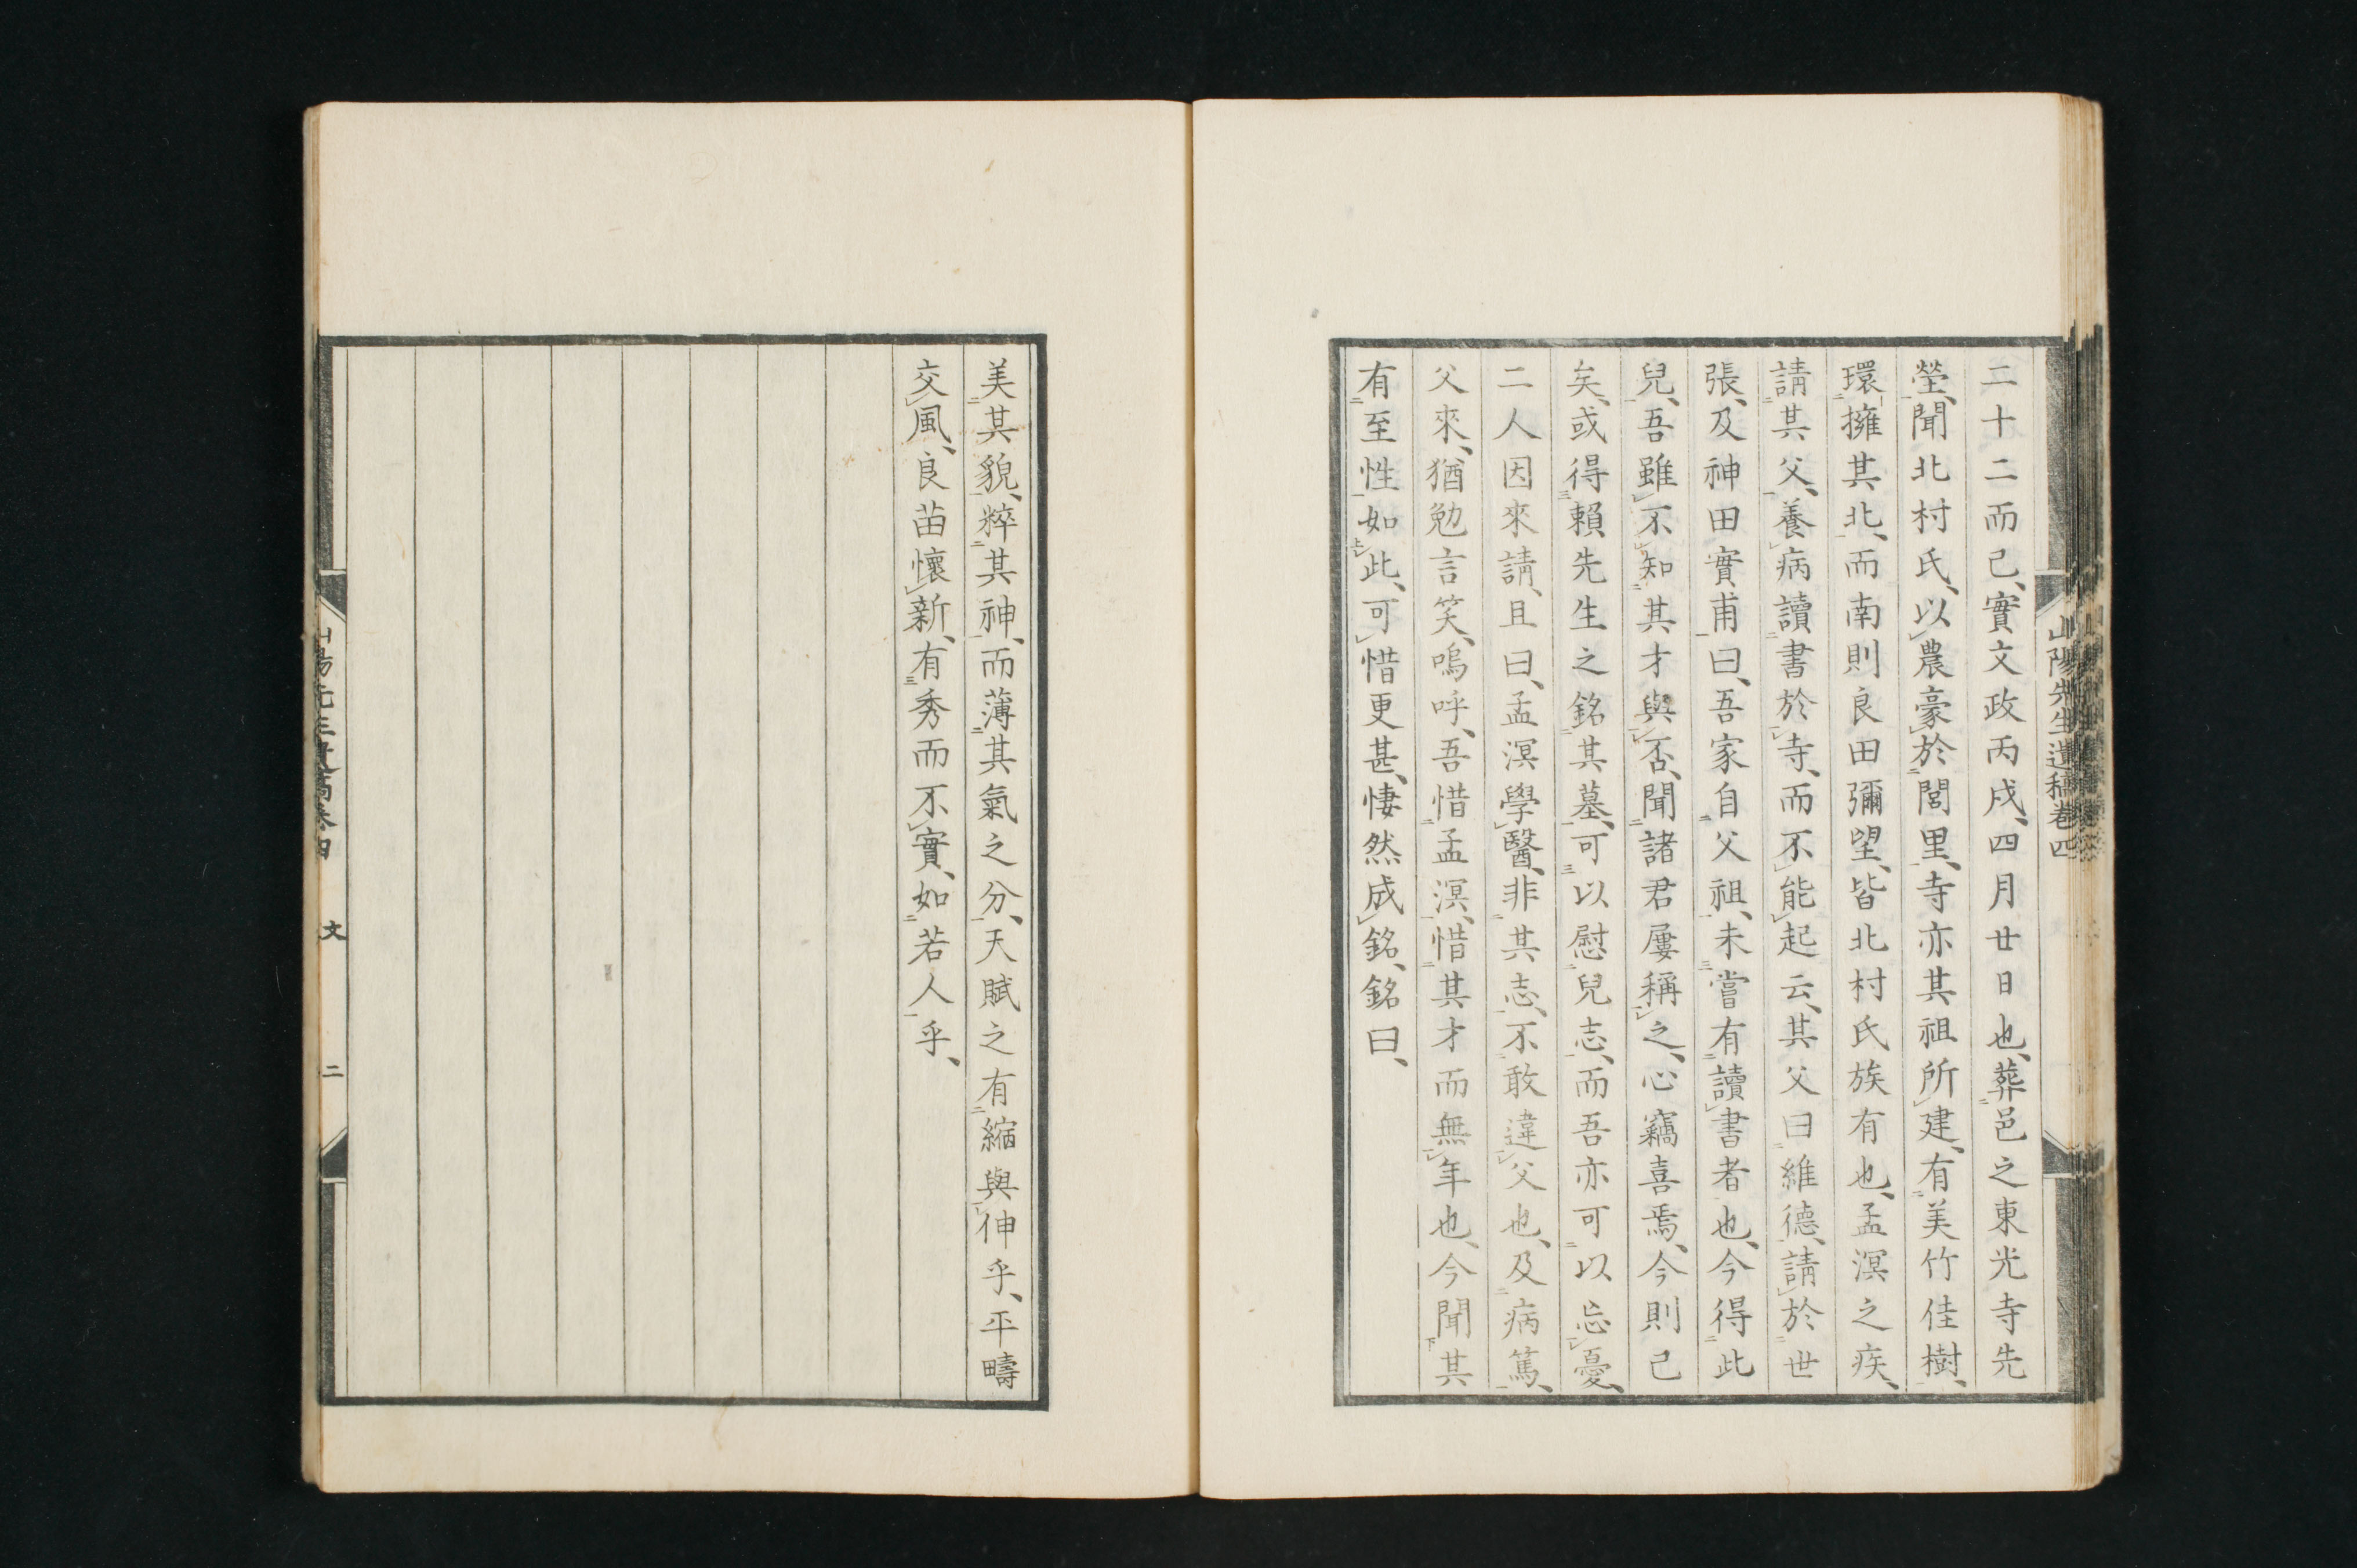 山陽先生遺稿卷四
二十二而已、實文政丙戌、四月廿日也、葬邑之東光寺先
塋、聞北村氏、以農豪於閭里、寺亦其祖所建、有美竹佳樹、
環擁其北、而南則良田彌望、皆北村氏族有也、孟溟之疾、
請其父、養病讀書於寺、而不能起云、其父曰維德、請於世
張、及神田實甫曰、吾家自父祖、未嘗有讀書者也、今得此
兒、吾雖不知其才與否、聞諸君屢稱之、心竊喜焉、今則已
矣、或得賴先生之銘其墓、可以慰兒志、而吾亦可以忘憂、
二人因來請、且曰、孟溟學醫、非其志、不敢違父也、及病篤、
父來、猶勉言笑、嗚呼、吾惜孟溟、惜其才而無年也、今聞其
有至性如此、可惜更甚、悽然成銘、銘曰、
美其貌、粹其神、而薄其氣之分、天賦之有縮與伸乎、平疇
交風、良苗懷新、有秀而不實、如若人乎、
山陽先生遺稿卷四 文 二